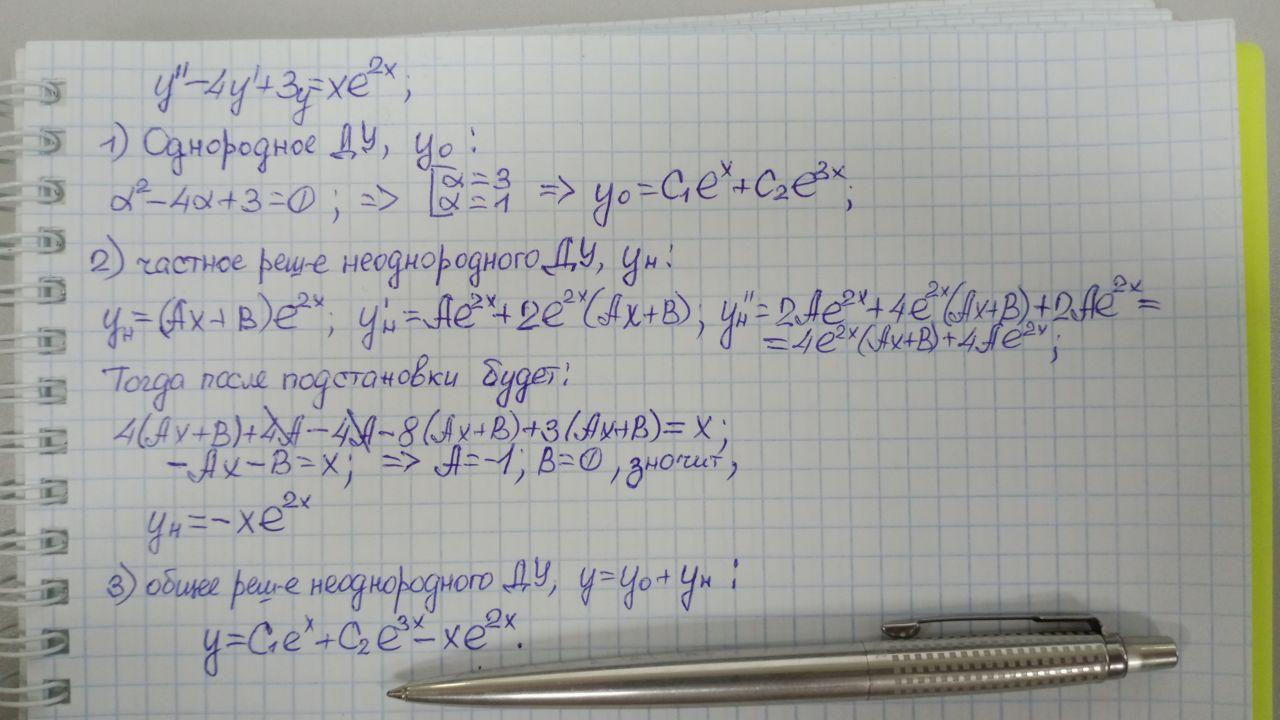 y''-4y'+3y=xe^{2x};
1) Однородное ДУ, y₀:
α²-4α+3=0; => [α=3 α=1 => y₀=C₁e^x+C₂e^{3x};
2) частное реш-е неоднородного ДУ, yн:
yн=(Ax+B)e^{2x}; y'н=Ae^{2x}+2e^{2x}(Ax+B); y''н=2Ae^{2x}+4e^{2x}(Ax+B)+2Ae^{2x}=
=4e^{2x}(Ax+B)+4Ae^{2x};
Тогда после подстановки будет:
4(Ax+B)+4A-4A-8(Ax+B)+3(Ax+B)=x;
-Ax-B=x; => A=-1; B=0, значит,
yн=-xe^{2x}
3) общее реш-е неоднородного ДУ, y=y₀+yн:
y=C₁e^x+C₂e^{3x}-xe^{2x}.